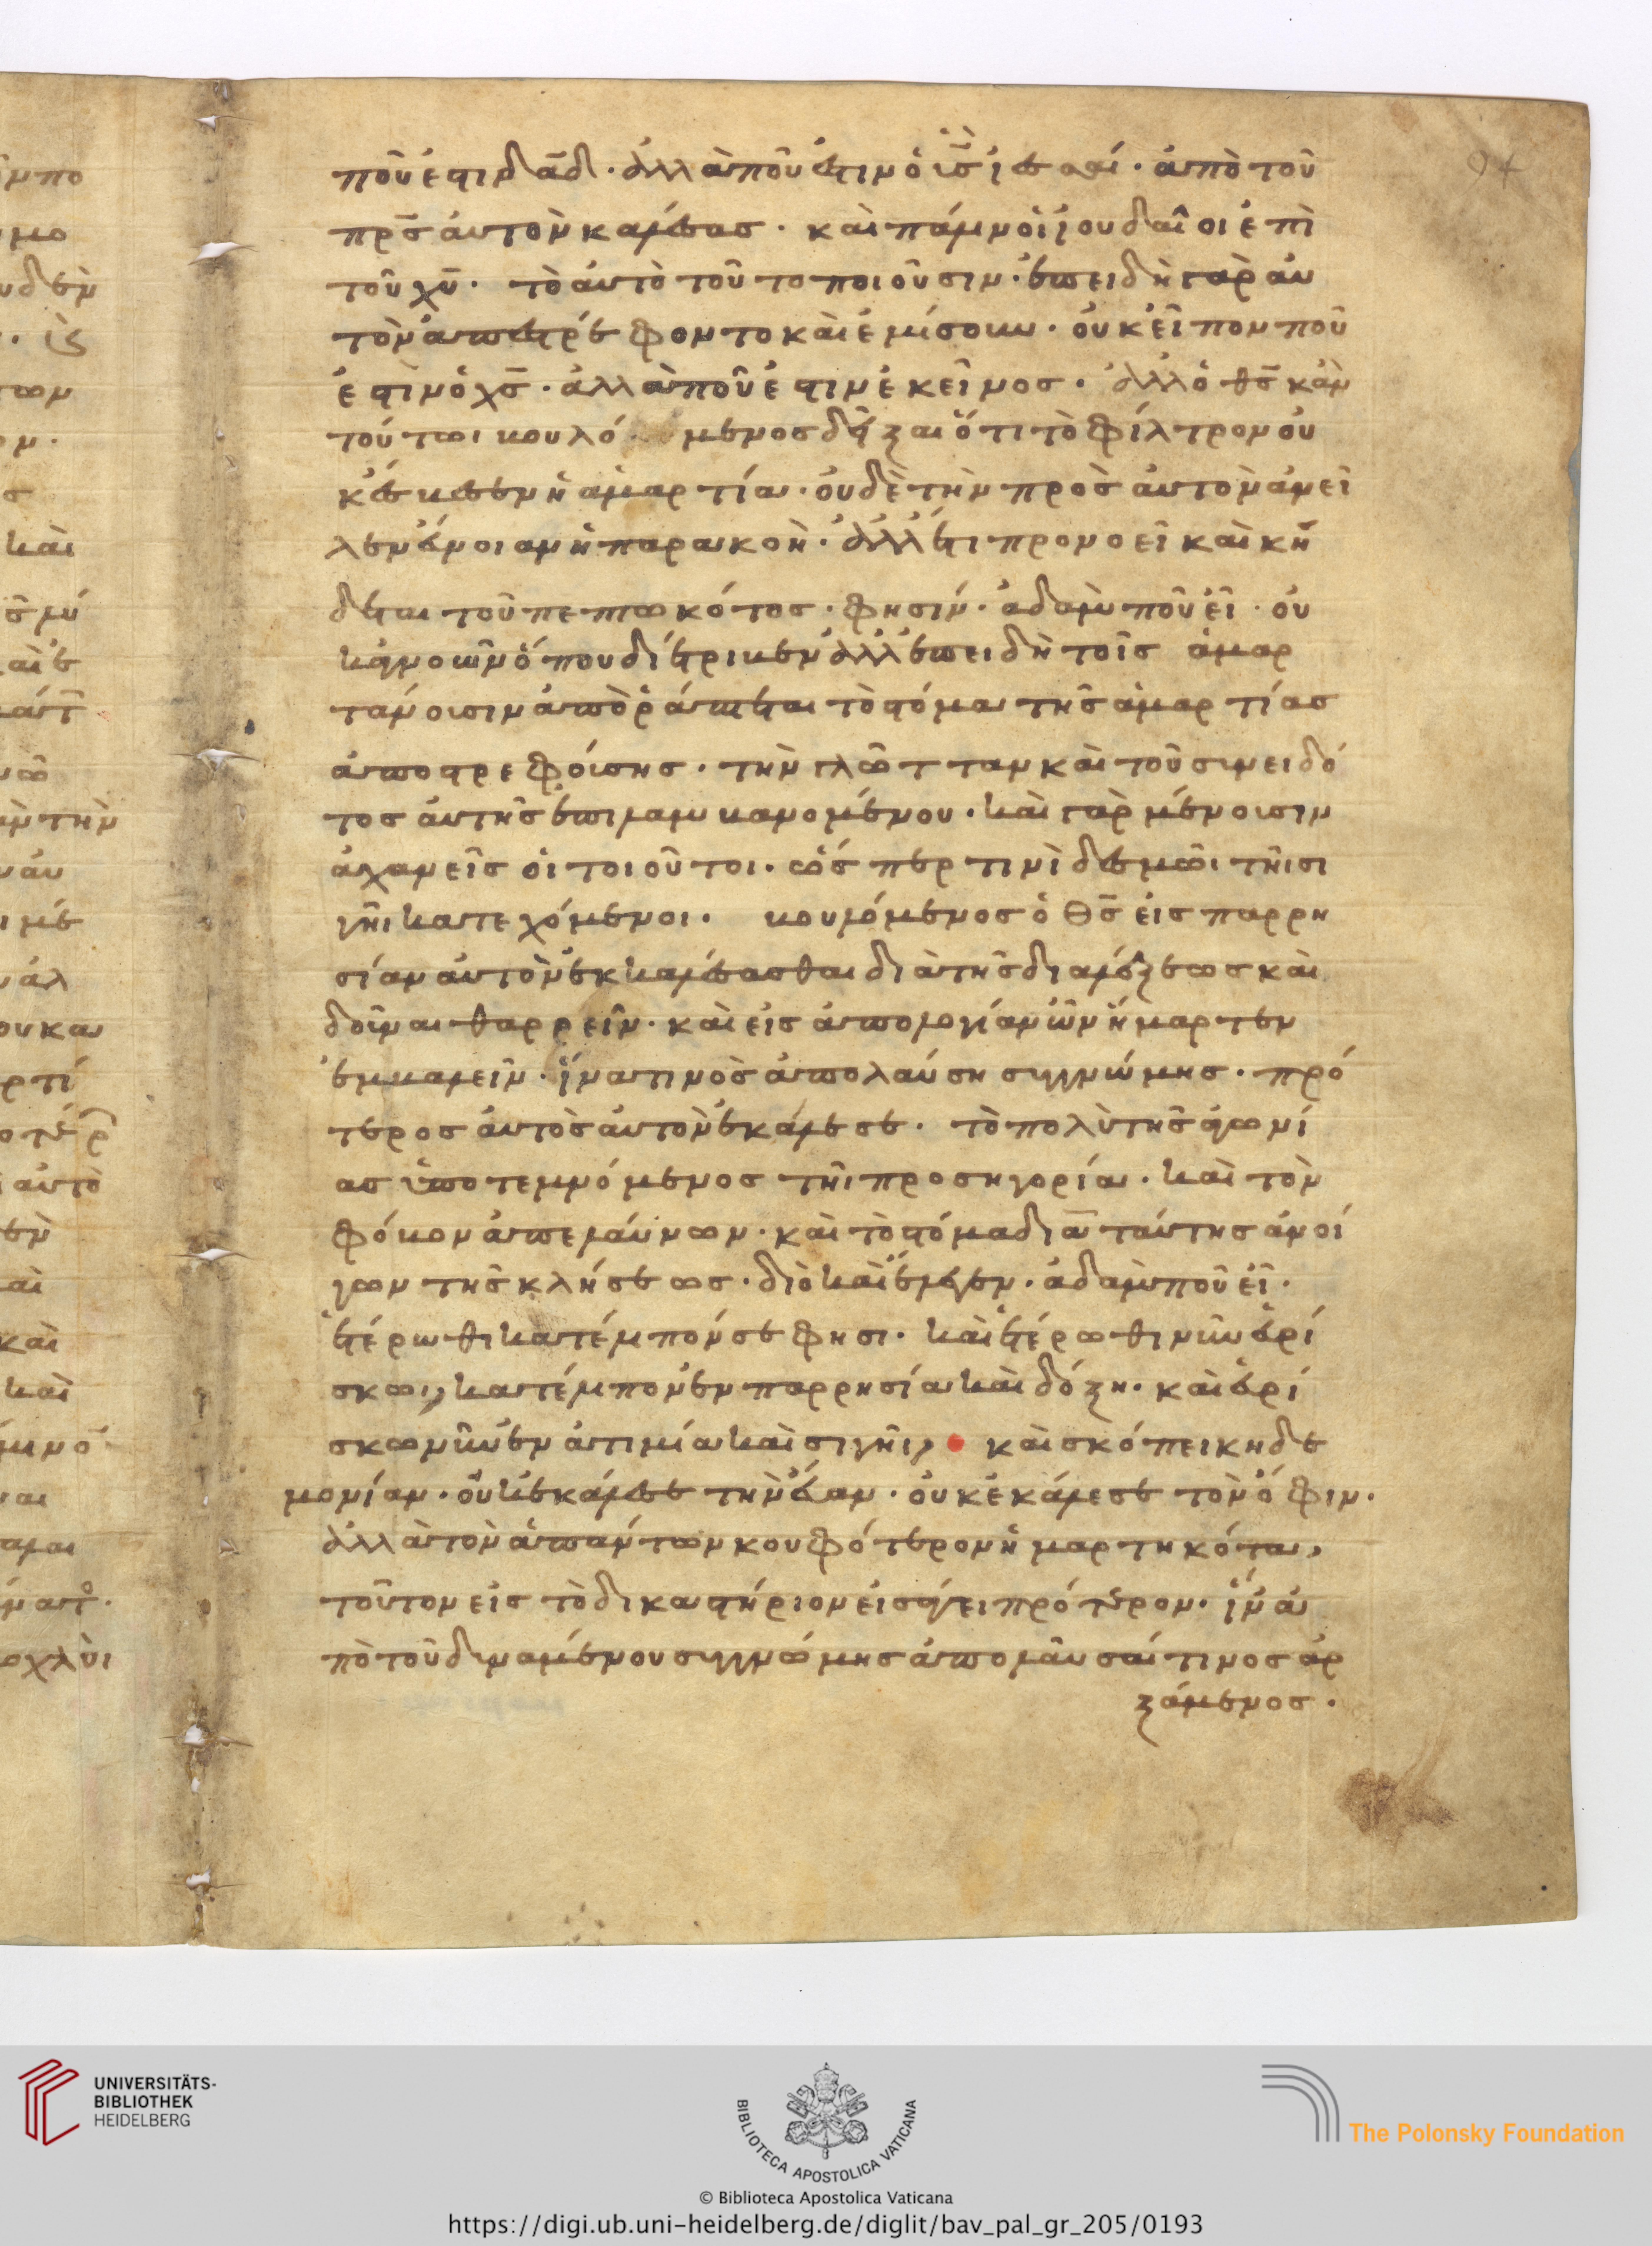 94
ποῦ ἐστι δᾱδ· ἀλλὰ ποῦ ἐστιν ὁ ῑς̄ ἰεσσαί· ἀπὸ τοῦ
πρ̄ς αὐτὸν καλέσας· καὶ πάλιν οἱ ἰουδαῖοι ἐπὶ
τοῦ χῡ· τὸ αὐτὸ τοῦτο ποιοῦσιν· ἐπειδὴ γὰρ αυ
τὸν ἀπεστρέφοντο καὶ ἐμίσουν· οὐκ εἶπον ποῦ
ἐστὶν ὁ χ̄ς· ἀλλὰ ποῦ ἐστιν ἐκεῖνος· ἀλλ' ὁ θ̄ς κἀν
τούτωι βουλόμενος δεῖξαι ὅτι τὸ φίλτρον οὐ
κ ἔσβεσεν ἡ ἁμαρτία· οὐδὲ τὴν πρὸς αὐτὸν ἀνεῖ
λεν εὔνοιαν ἡ παρακοή· ἀλλ' ἔτι προνοεῖ καὶ κή
δεται τοῦ πεπτωκότος· φησίν· ἀδαμ ποῦ εἶ· οὐ
κ ἀγνοῶν ὅπου διέτριβεν ἀλλ' ἐπειδὴ τοῖς ἁμαρ
τάνουσιν ἀπορράπτεται τὸ στόμα τῆς ἁμαρτίας
ἀποστρεφούσης· τὴν γλῶτταν καὶ τοῦ συνειδό
τος αὐτῆς ἐπιλαμβανομένου· καὶ γὰρ μένουσιν
ἀχανεῖς οἱ τοιοῦτοι· ὥσπερ τινὶ δεσμῶι τῆι σι
γῆι κατεχόμενοι· βουλόμενος ὁ θ̄ς εἰς παρρη
σίαν αὐτὸν ἐκκαλέσασθαι διὰ τῆς διαλέξεως καὶ
δοῦναι θαρρεῖν· καὶ εἰς ἀπολογίαν ὧν ἥμαρτεν
ἐμβαλεῖν· ἵνα τινὸς ἀπολαύση συγγνώμης· πρό
τερος αὐτὸς αὐτὸν ἐκάλεσε· τὸ πολὺ τῆς ἀγωνί
ας ὑποτεμνόμενος τῆι προσηγορία· καὶ τὸν
φόβον ἀπελαύνων· καὶ τὸ στόμα διὰ ταύτης ἀνοί
γων τῆς κλήσεως· διὸ καὶ ἔλεγεν· ἀδαμ ποῦ εἶ·
ἑτέρωθι κατέλιπόν σε φησι· καὶ ἑτέρωθι νῦν εὑρί
σκω, κατέλιπον ἐν παρρησία καὶ δόξη· καὶ εὑρί
σκω νῦν ἐν ἀτιμία καὶ σιγῆι, καὶ σκόπει κηδε
μονίαν· οὐκ ἐκάλεσε τὴν εὔαν· οὐκ ἐκάλεσε τὸν ὄφιν·
ἀλλὰ τὸν ἁπάντων κουφότερον ἡμαρτηκότα,
τοῦτον εἰς τὸ δικαστήριον εἰσάγει πρότερον· ἵν' ἀ
πὸ τοῦ δυναμένου συγγνώμης ἀπολαῦσαί τινος ἀρ
ξάμενος·
UNIVERSITÄTS-
BIBLIOTHEK
HEIDELBERG
BIBLIOTECA APOSTOLICA VATICANA
The Polonsky Foundation
© Biblioteca Apostolica Vaticana
https://digi.ub.uni-heidelberg.de/diglit/bav_pal_gr_205/0193